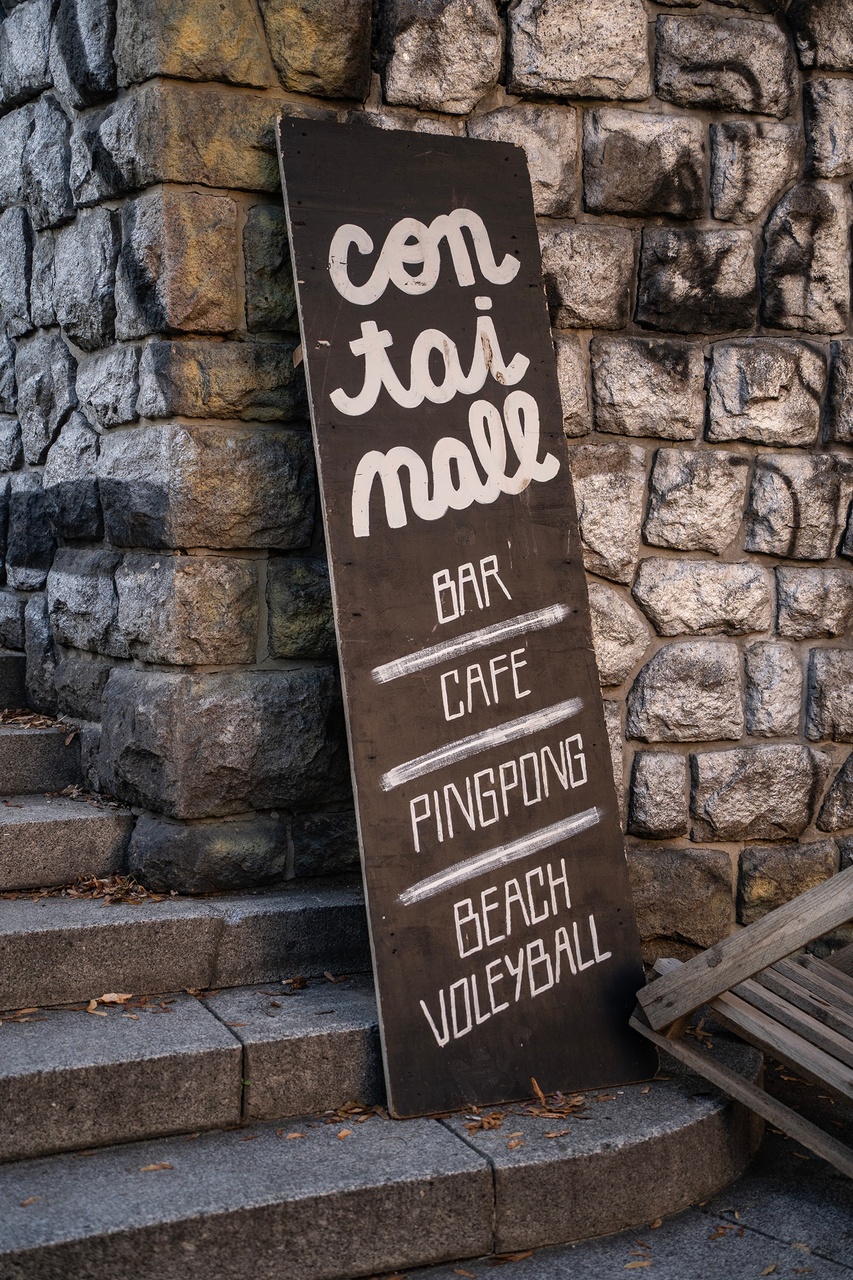 con
tai
nall
BAR
CAFE
PINGPONG
BEACH
VOLEYBALL